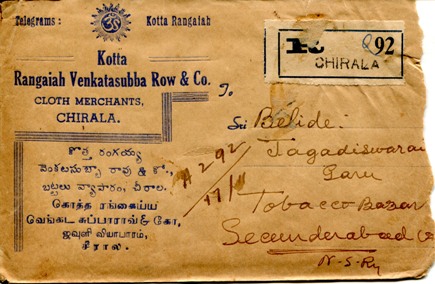 Telegrams : Kotta Rangaiah
Kotta
Rangaiah Venkatasubba Row & Co.
CLOTH MERCHANTS,
CHIRALA.
కొత్త రంగయ్య
వెంకటసుబ్బా రావు & కో.,
బట్టలు వ్యాపారం, చీరాల.
கொத்த ரங்கைய்ய
வெங்கட சுப்பாராவ் & கோ,
ஜவுளி வியாபாரம்,
சீரால.
92
CHIRALA
To
Sri Belide
Jagadiswarai
Garu
Tobacco Bazar
Secunderabad
N-S-Ry
A 292
17/11